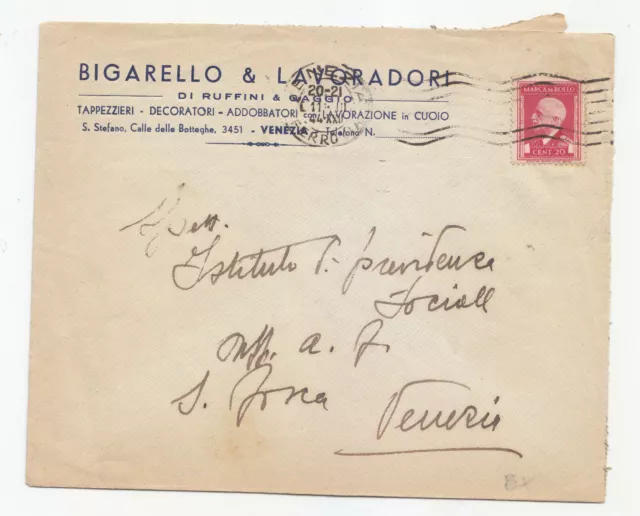 BIGARELLO & LAVORADORI
DI RUFFINI & GAGGIO
TAPPEZZIERI - DECORATORI - ADDOBBATORI con LAVORAZIONE in CUOIO
S. Stefano, Calle delle Botteghe, 3451 - VENEZIA - Telefono N.
20-21
MARCA DA BOLLO
CENT. 20
Spett.
Istituto di previdenza
Sociale
S. Fosca Venezia